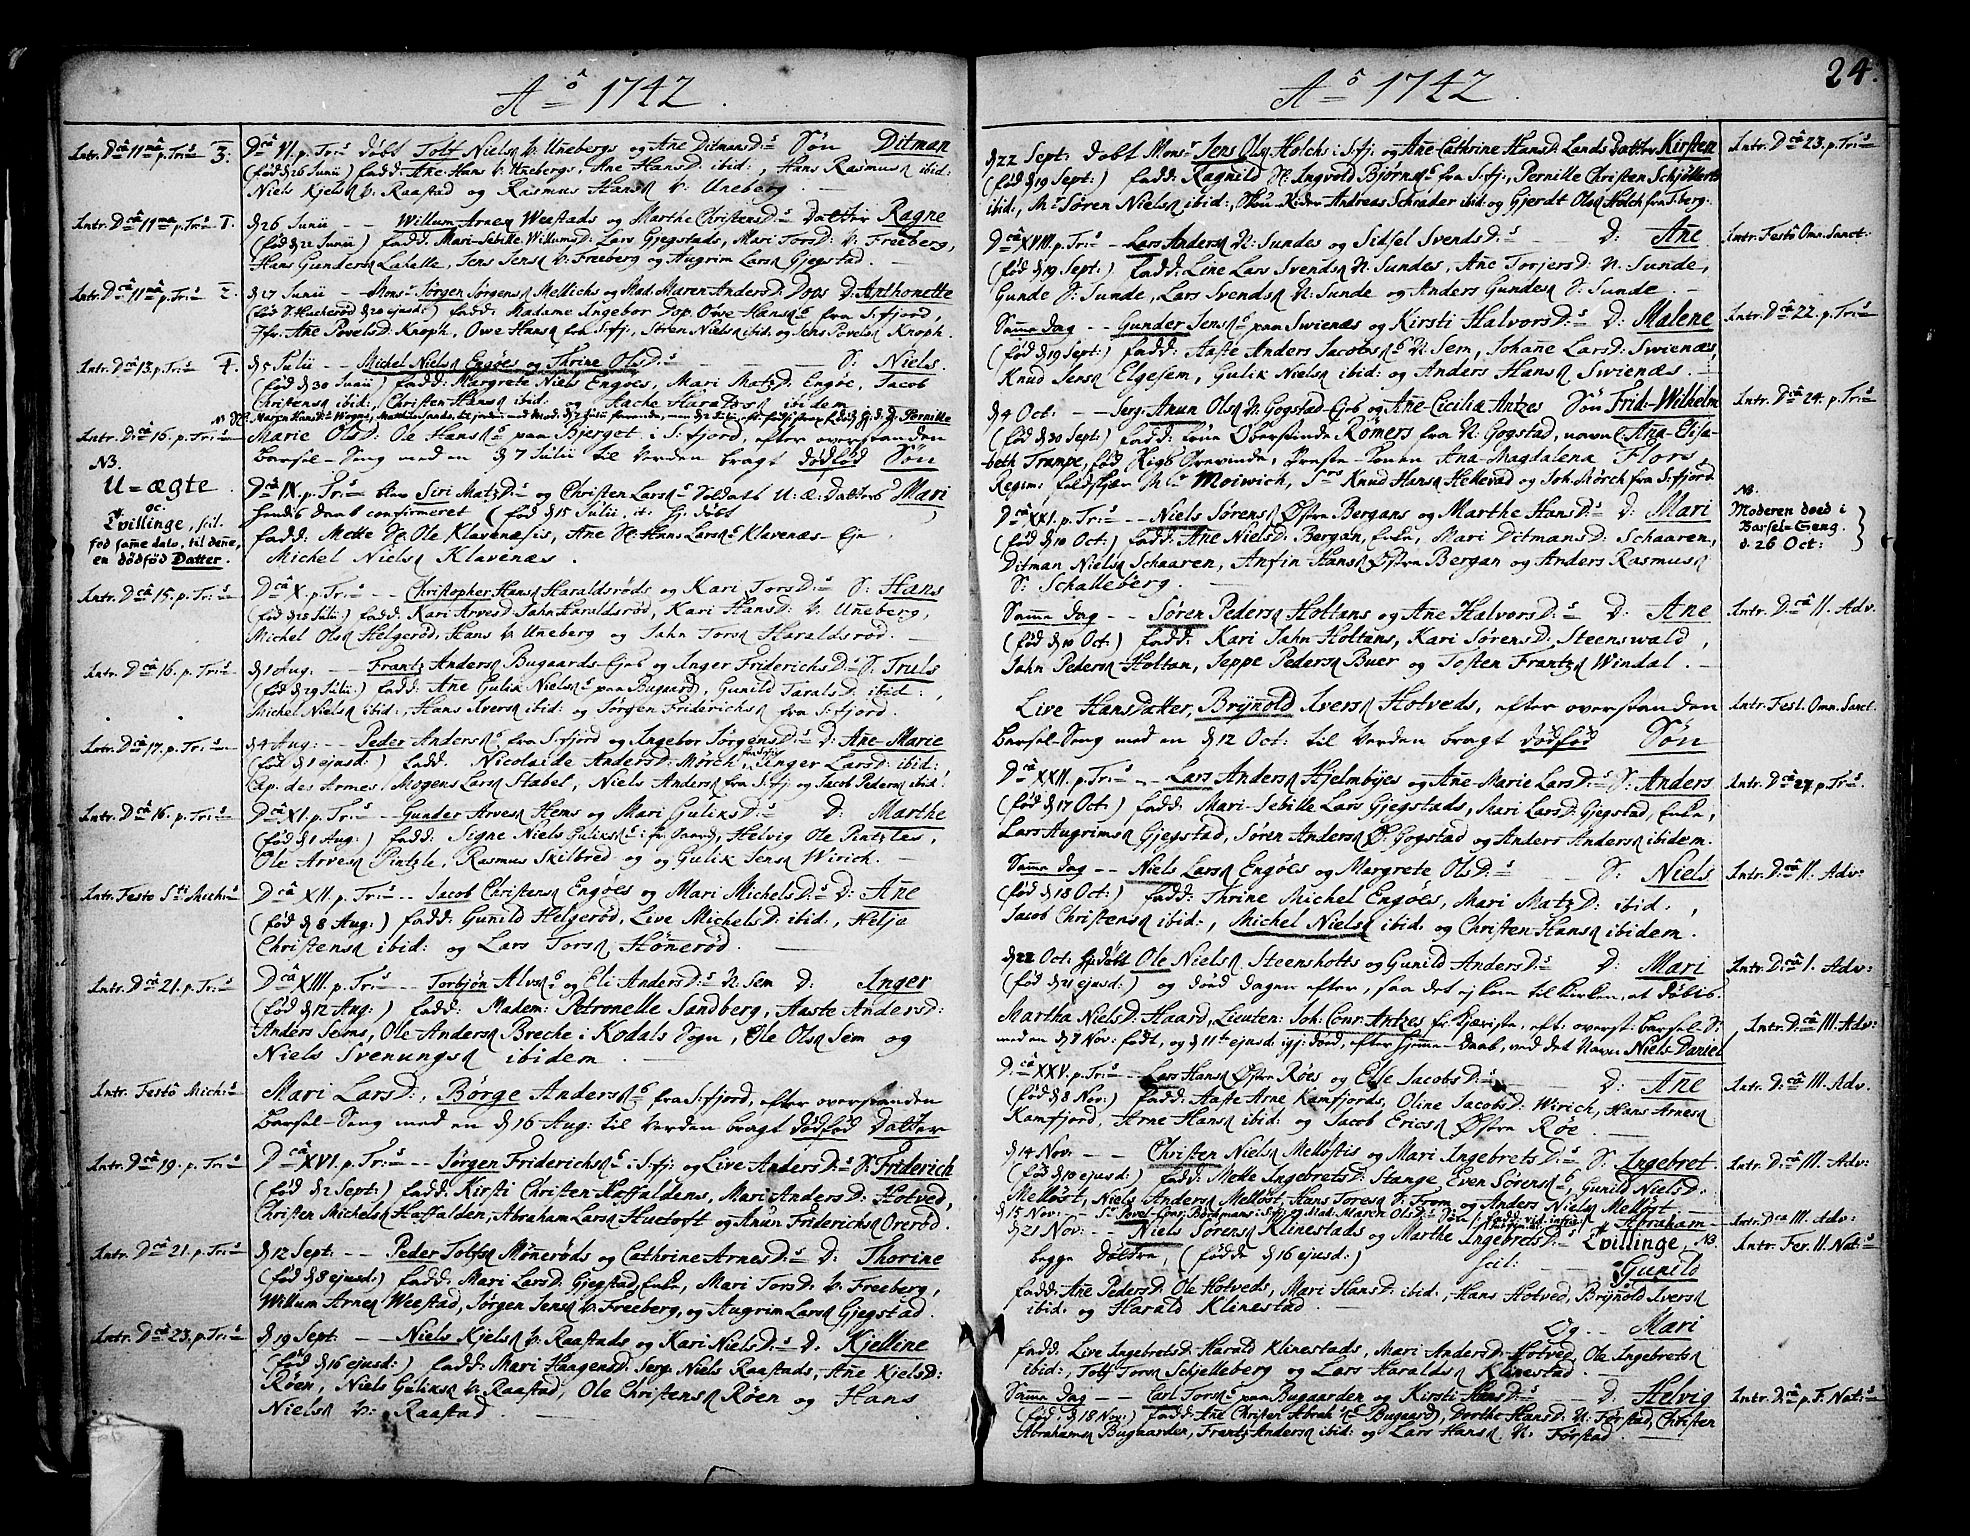 Aô 1742.
Intr. Dcâ 11mâ p. Tr:s 3.
Dcâ VI. p. Tr:s døbt Tolf Nielsø V: Unebergs og Ane DitmansD:s Søn Ditman
(fød d 26 Junii) fadd: Ane Hans V: Unebergs, Ane HansD: ibid:, Hans Rasmusø ibid:
Niels Kjelsø V: Raastad og Rasmus Hansø V: Uneberg.
Intr. Dcâ 11ma p. Tr:s I.
d 26 Junii -- Willum Arnesø Weestads og Marthe ChristensD:s Datter Ragne
(fød d 22 Junii) fadd: Mari-Sebille WillumsD: Lars Gjegstads, Mari TorsD: V: Freeberg,
Hans Gundersø Lahelle, Jens Jensø V: Freeberg og Augrim Larsø Gjegstad.
Intr. Dcâ 11mâ p. Tr:s 2
d 27 Junii -- Mons:r Jørgen Jørgensø Mellichs og Mad: Maren AndersD: Dops D: Anthonette
(fød S: Hucherød d 20 ejusd:) fadd: Madame Ingebor Dop, Owe Hansø fra S:fjord,
Jfr: Ane PovelsD: Knoph, Owe Hansø fra S:fj:, Søren Nielsø ibid: og Jens Povelsø Knoph.
Intr. Dcâ 13. p. Tr:s 4.
d 5 Julii -- Michel Nielsø Engøes og Thrine OlsD:s -- S: Niels.
(fød d 30 Junii) fadd: Margrete Niels Engøes, Mari MatzD: Engøe, Jacob
Christensø ibid:, Christen Hansø ibid: og Anche Haraldsø ibidem
Intr. D:câ 16. p. Tr:s
Marie OlsD: Ole Hansø paa Bjerget i S:fjord, efter overstanden
Barsel-Seng med en d 7 Julii til Verden bragt dødfød Søn
NB.
U=ægte
oc:
Tvillinge, scil.
fød saṁe dato, til deñe,
en dødfød Datter.
Dcâ IX. p. Tr:s blev Siri MatzD:s og Christen Larsø Soldats U: æ: Datters Mari
Hendis daab confirmeret (fød d 15 Julii, it: Hj: døbt)
fadd: Mette Sr: Ole Klavenæsis, Ane Sr: Hans Larsø Klavenæs-Eje
Michel Nielsø Klavenæs.
Intr. Dcâ 15. p. Tr:s
Dcâ X. p. Tr:s -- Christopher Hansø Haraldsrøds og Kari TorsD:s S: Hans
(fød d 25 Julii) fadd: Kari ArvesD: Jahn Haraldsrød, Kari HansD: V: Uneberg,
Michel Olsø Helgerød, Hans V: Uneberg og Jahn Torsø Haraldsrød.
Intr. Dcâ 16. p. Tr:s
d 1 Aug: -- Frantz Andersø Bugaards-Ejes og Inger FriderichsD:s S: Truls
(fød d 29 Julii) fadd: Ane Gulik Nielsø paa Bugaard, Gunild TaralsD: ibid:,
Michel Nielsø ibid:, Hans Iversø ibid: og Jørgen Friderichsø fra S:fjord.
Intr. Dcâ 17. p. Tr:s
d 4 Aug: -- Peder Andersø fra S:fjord og Ingebor JørgensD:s D: Ane-Marie
(fød d 1 ejusd:) fadd: Nicolaide AndersD: Mørch fra S:fj:, Inger LarsD: ibid:
Cap. des Armes Mogens Larsø Stabel, Niels Andersø fra S:fj: og Jacob Pedersø ibid:
Intr. Dcâ 16. p. Tr:s
Dcâ XI. p. Tr:s -- Gunder Arvesø Hems og Mari GuliksD:s D: Marthe
(fød d 1 Aug:) fadd: Signe Niels Guliksø, Helvig Ole Pintzles,
Ole Arvesø Pintzle, Rasmus Skilbred og og Gulik Jensø Wirich.
Intr. Festo Sti Mich:s
Dcâ XII. p. Tr:s -- Jacob Christensø Engøes og Mari MichelsD:s D: Ane
(fød d 8 Aug:) fadd: Gunild Helgerød, Live MichelsD: ibid:, Helje
Christensø ibid: og Lars Torsø Hønerød.
Intr. Dcâ 21. p. Tr:s
Dcâ XIII. p. Tr:s -- Torbjøn Alvsø og Eli AndersD:s N: Sem D: Inger
(fød d 12 Aug:) fadd: Madem: Petronelle Sandberg, Aaste AndersD:
Anders Sems, Ole Andersø Breche i Kodals Sogn, Ole Olsø Sem og
Niels Svenungsø ibidem.
Intr. Festô Mich:s
Mari LarsD:, Børge Andersø fra S:fjord, efter overstanden
Barsel-Seng med en d 16 Aug: til Verden bragt dødfød Datter
Intr. Dcâ 19. p. Tr:s
Dcâ XVI. p. Tr:s -- Jørgen Friderichsø i S:fj: og Live AndersD:s S: Friderich
(fød d 2 Sept:) fadd: Kirsti Christen Haffaldens, Mari AndersD: Hotved,
Christen Michelsø Haffalden, Abraham Larsø Huctoft og Anun Friderichsø Orerød.
Intr. Dcâ 21. p. Tr:s
d 12 Sept: -- Peder Tolfsø Mønerøds og Cathrine ArnesD:s D: Thorine
(fød d 8 ejusd:) fadd: Mari LarsD: Gjegstad, Mari TorsD: V: Freeberg,
Willum Arnesø Weestad, Jørgen Jensø V: Freeberg, og Augrim Larsø Gjegstad.
Intr. Dcâ 23. p. Tr:s
d 19 Sept: -- Niels Kjelsø V: Raastads og Kari NielsD:s D: Kjelline
(fød d 16 ejusd:) fadd: Mari HaagensD: Serg: Niels Raastads, Ane KjelsD:
Røen, Niels Guliksø V: Raastad, Ole Christensø Røen og Hans
Nielsø V: Raastad.
Aô 1742. 24.
d 22 Sept: døbt Mons:r Jens Olsø Holchs i S:fj: og Ane-Cathrine HansD: Lands Datter Kirsten
(fød d 19 Sept:) fadd: Ragnild Sr. Ingvold Bjørnsø fra S:fj:, Pernille Christen Schjølderts
ibid:, Mr Søren Nielsø ibid:, Andreas Schrader ibid: og Gjerdt Olsø Holch fra T:berg.
Intr. Dcâ 23. p. Tr:s
Dcâ XVIII. p. Tr:s -- Lars Andersø N: Sundes og Sidsel SvendsD:s D: Ane
(fød d 19 Sept:) fadd: Line Lars Svendsø N: Sundes, Ane TorjersD: N: Sunde,
Gunde S: Sunde, Lars Svendsø N: Sunde og Anders Gundesø S: Sunde.
Intr. Festô Omn. Sanct:
Saṁe dag -- Gunder Jensø paa Swienæs og Kirsti HalvorsD:s D: Malene
(fød d 19 Sept:) fadd: Aaste Anders Jacobsø N: Sem, Johañe LarsD: Swienæs,
Knud Jensø Elgesem, Gulik Nielsø ibid: og Anders Hansø Swienæs.
Intr. Dcâ 22. p. Tr:s
d 4 Oct: -- Serg: Anun Olsø N: Gogstad-Ejes og Ane-Cicilia Antzes Søn Frid:-Wilhelm
(fød d 30 Sept:) fadd: Frue Oberstinde Römers fra N: Gogstad, navnl: Aña-Elisa-
beth Trampe, fød Rigs Grevinde, Ana-Magdalena Flors,
Regim: feldskjær Moiwich, Srs Knud Hansø Hellevad og Joh: Mørch fra S:fjord.
Intr. Dcâ 24. p. Tr:s
Dcâ XXI. p. Tr:s -- Niels Sørensø Østre Bergans og Marthe HansD:s D: Mari
(fød d 10 Oct:) fadd: Ane NielsD: Bergan, Enke, Mari DitmansD: Schaaren,
Ditman Nielsø Schaaren, Anfin Hansø Østre Bergan og Anders Rasmusø
S: Schalleberg.
NB.
Moderen døed i
Barsel=Seng.
d. 26 Oct:
Saṁe dag -- Søren Pedersø Holtans og Ane HalvorsD:s D: Ane
(fød d 10 Oct:) fadd: Kari Jahn Holtans, Kari SørensD: Steenswald,
Jahn Pedersø Holtan, Jeppe Pedersø Buer og Tosten Frantzø Windal.
Intr. Dcâ 11. Adv.
Live HansDatter, Brynold Iversø Hotveds, efter overstanden
Barsel-Seng med en d 12 Oct: til Verden bragt dødfød Søn
Intr. Fest. Omn. Sanct.
Dcâ XXII. p. Tr:s -- Lars Andersø Hjelmbyes og Ane-Marie LarsD:s S: Anders
(fød d 17 Oct:) fadd: Mari-Sebille Lars Gjegstads, Mari LarsD: Gjegstad, Enke,
Lars Augrimsø Gjegstad, Søren Andersø Ø: Gogstad og Anders Andersø ibidem.
Intr. Dcâ 27. p. Tr:s
Saṁe dag -- Niels Larsø Engøes og Margrete OlsD:s S: Niels
(fød d 18 Oct:) fadd: Thrine Michel Engøes, Mari MatzD: ibid:,
Jacob Christensø ibid:, Michel Nielsø ibid: og Christen Hansø ibidem.
Intr. Dcâ 11. Adv:
d 22 Oct: Hj:døbt Ole Nielsø Steensholts og Gunild AndersD:s D: Mari
(fød d 21 ejusd:) og døed dagen efter, saa det ej kom til kirken, at døbis.
Intr. D:câ I. Adv:
Martha NielsD: Haard, Lieuten: Joh: Conr: Antzes fr: Kjæriste, eft: overst: barsel-S:
med en d 7 Nov: født, og d 11te ejusd: igj: døed, efter Hjeṁe-Daab, ved det Navn Niels Daniel
Intr: Dcâ III. Adv:
D:câ XXV. p. Tr:s -- Lars Hansø Østre Røes og Else JacobsD:s D: Ane
(fød d 8 Nov:) fadd: Aaste Arne Kamfjords, Oline JacobsD: Wirich, Hans Arnesø
Kamfjord, Arne Hansø ibid: og Jacob Ericsø Østre Røe.
Intr. D:câ III. Adv.
d 14 Nov. -- Christen Nielsø Melløstis og Mari IngebretsD:s S: Ingebret
(fød d 10 ejusd:) fadd: Mette IngebretsD: Stange, Even Sørensø, Gunild NielsD:
Melløst, Niels Andersø Melløst, Hans Toresø S: Fevn og Anders Nielsø Melløst.
Intr. D:câ III. Adv:
d 15 Nov: -- Sr. Povel-Conr: Böckmans i S:fj: og Mad: Maren OlsD:s Søn Abraham
Intr. Dca III. Adv:
d 21 Nov: -- Niels Sørensø Klinestads og Marthe IngebretsD:s Tvillinge, NB.
begge Døttre, (fødde d 16 ejusd:) Scil: Gunild
Intr. Fer. II. Nat:s
fadd: Ane PedersD: Ole Hotveds, Mari HansD: ibid:, Hans Hotved, Brynold Iversø
ibid: og Harald Klinestad.
Og -- Mari
fadd: Live IngebretsD: Harald Klinestads, Mari AndersD: Hotved, Ole Ingebretsø
ibid:, Tolf Torsø Schjelleberg og Lars Haraldsø Klinestad.
Saṁe dag -- Carl Torsø paa Bugaarden og Kirsti HansD:s D: Helvig
(fød d 18 Nov:) fadd: Ane Christen Abrah:sø Bugaard, Dorthe HansD: N: Førstad, Christen
Abrahamsø Bugaarden, Frantz Andersø ibid: og Lars Hansø N: Førstad.
Intr. D:câ p. F. Nat:s